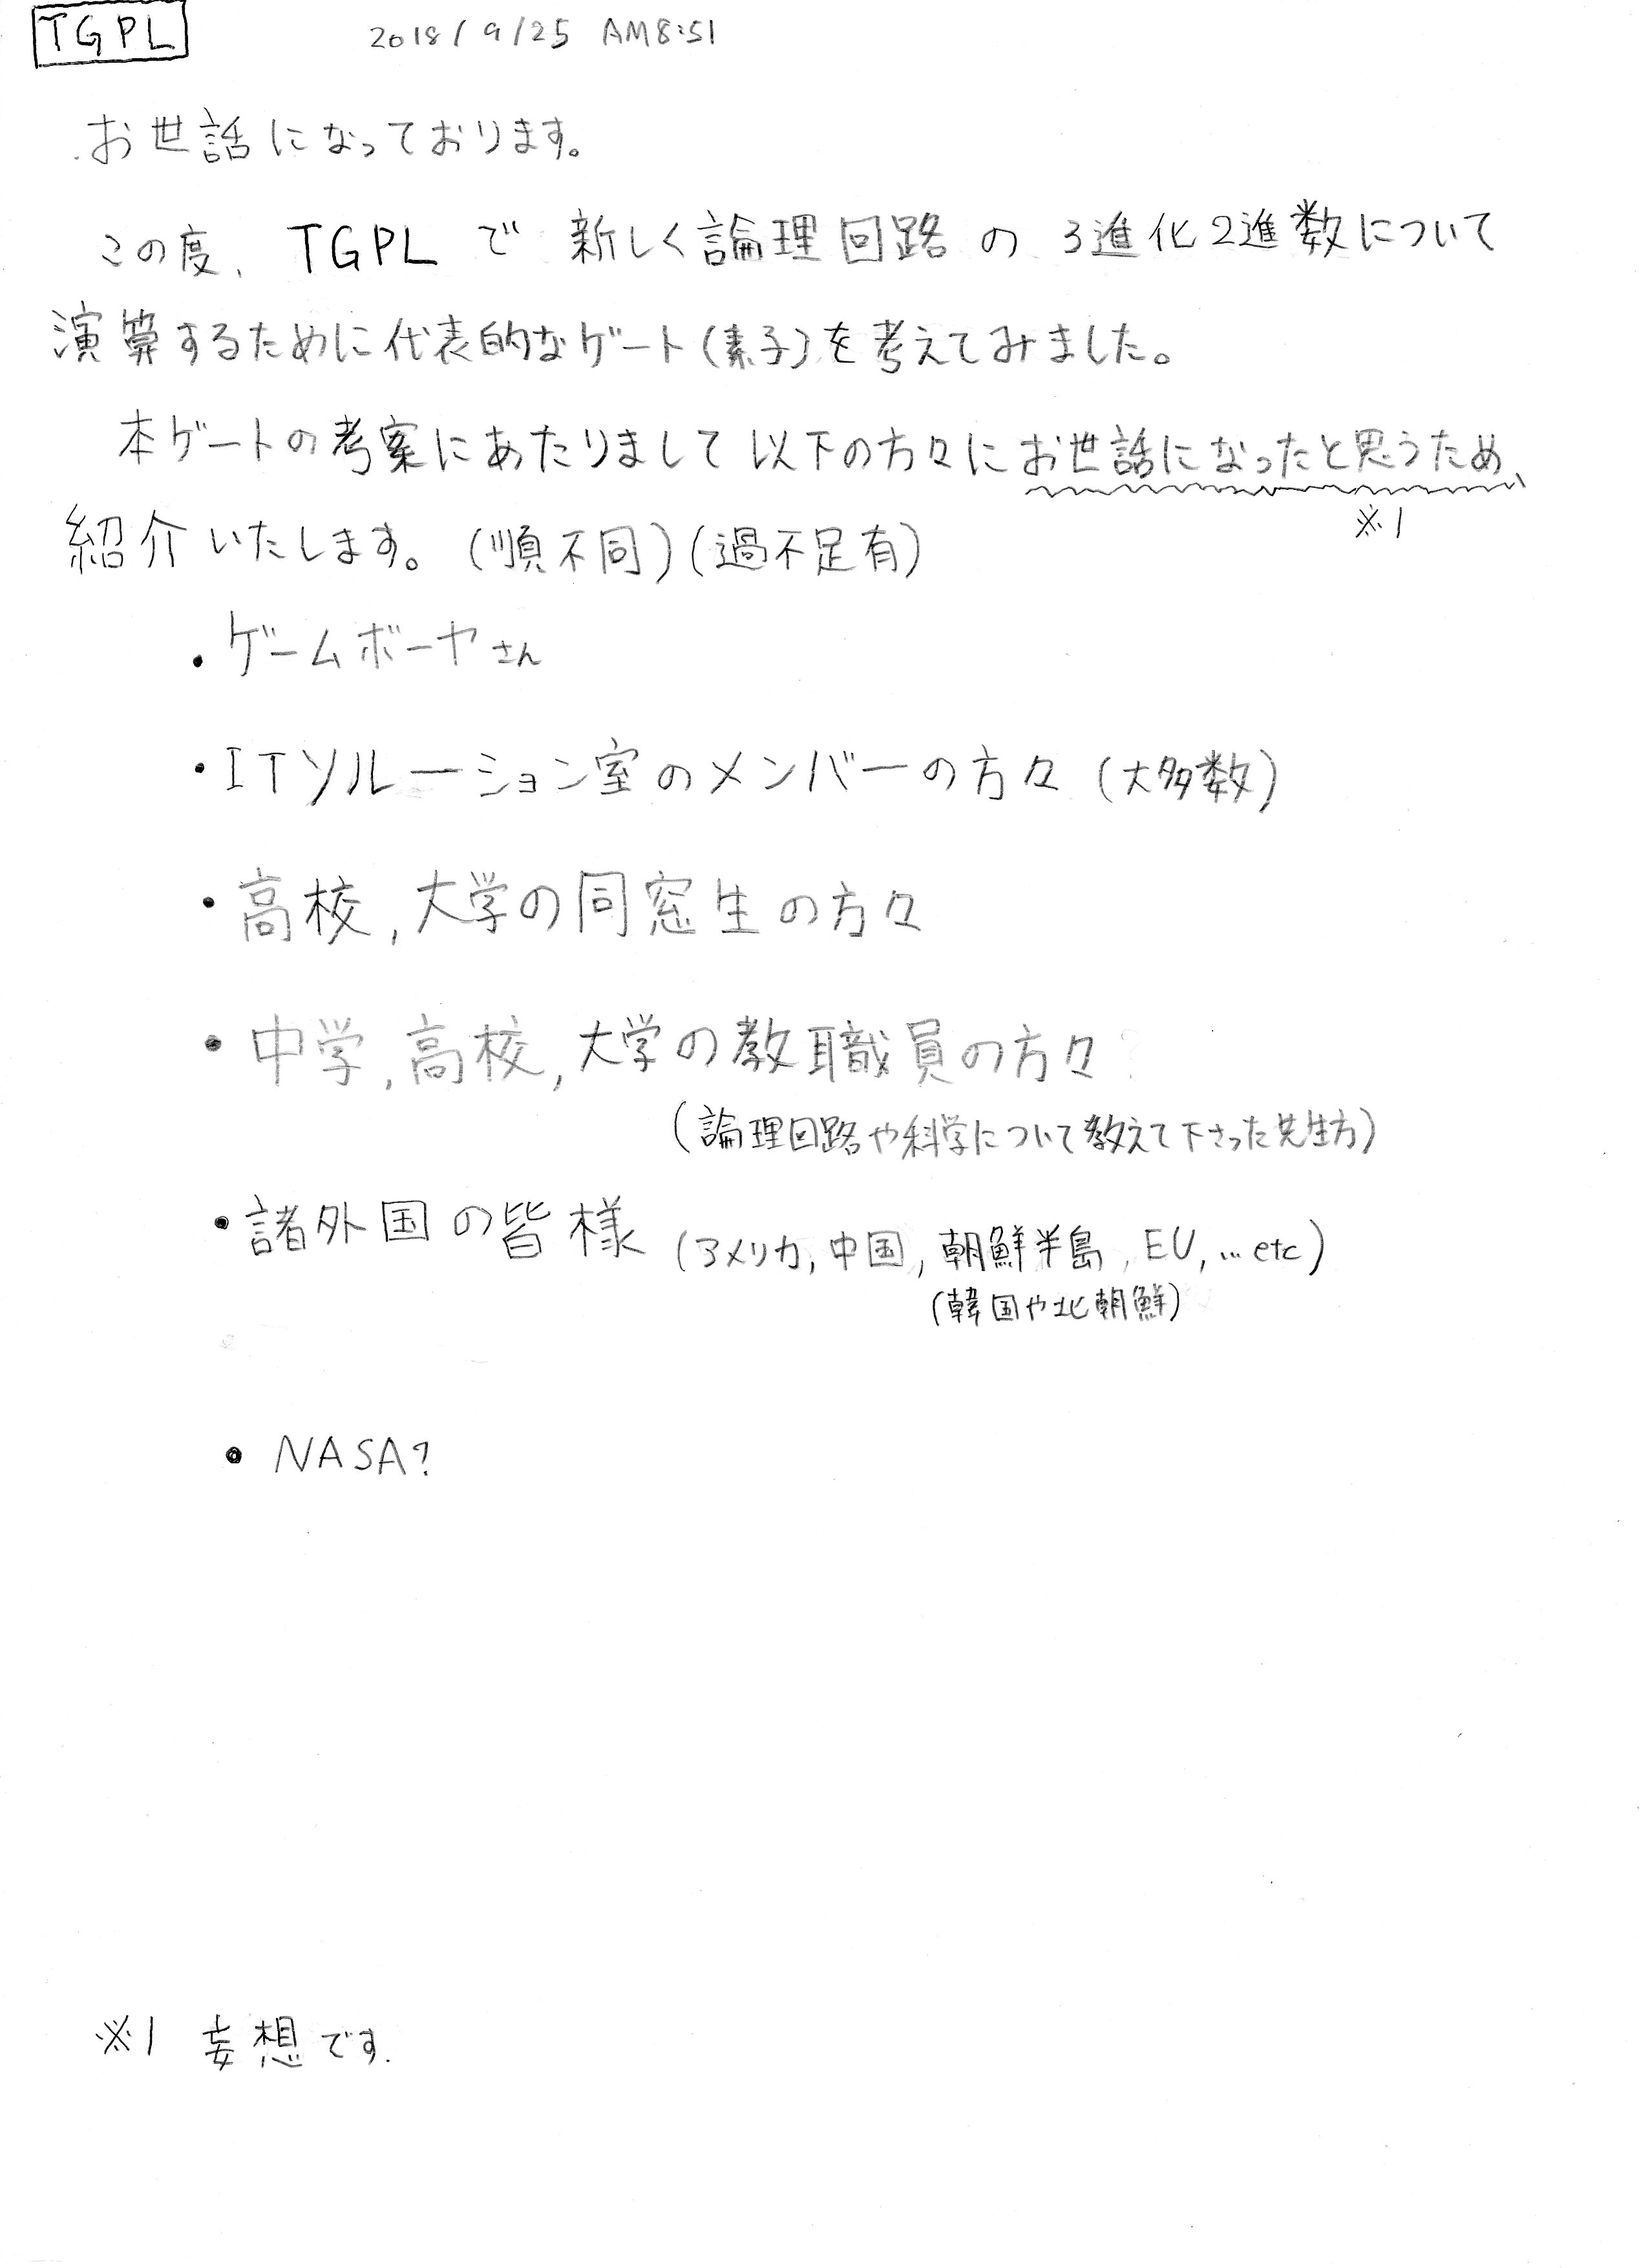 TGPL 2018/9/25 AM8:51
お世話になっております。
この度、TGPLで新しく論理回路の3進化2進数について
演算するために代表的なゲート(素子)を考えてみました。
本ゲートの考案にあたりまして以下の方々にお世話になったと思うため、
※1
紹介いたします。(順不同)(過不足有)
・ゲームボーヤさん
・ITソルーション室のメンバーの方々(大多数)
・高校,大学の同窓生の方々
・中学,高校,大学の教職員の方々
(論理回路や科学について教えて下さった先生方)
・諸外国の皆様(アメリカ,中国,朝鮮半島,EU,…etc)
(韓国や北朝鮮)
・NASA?
※1 妄想です.